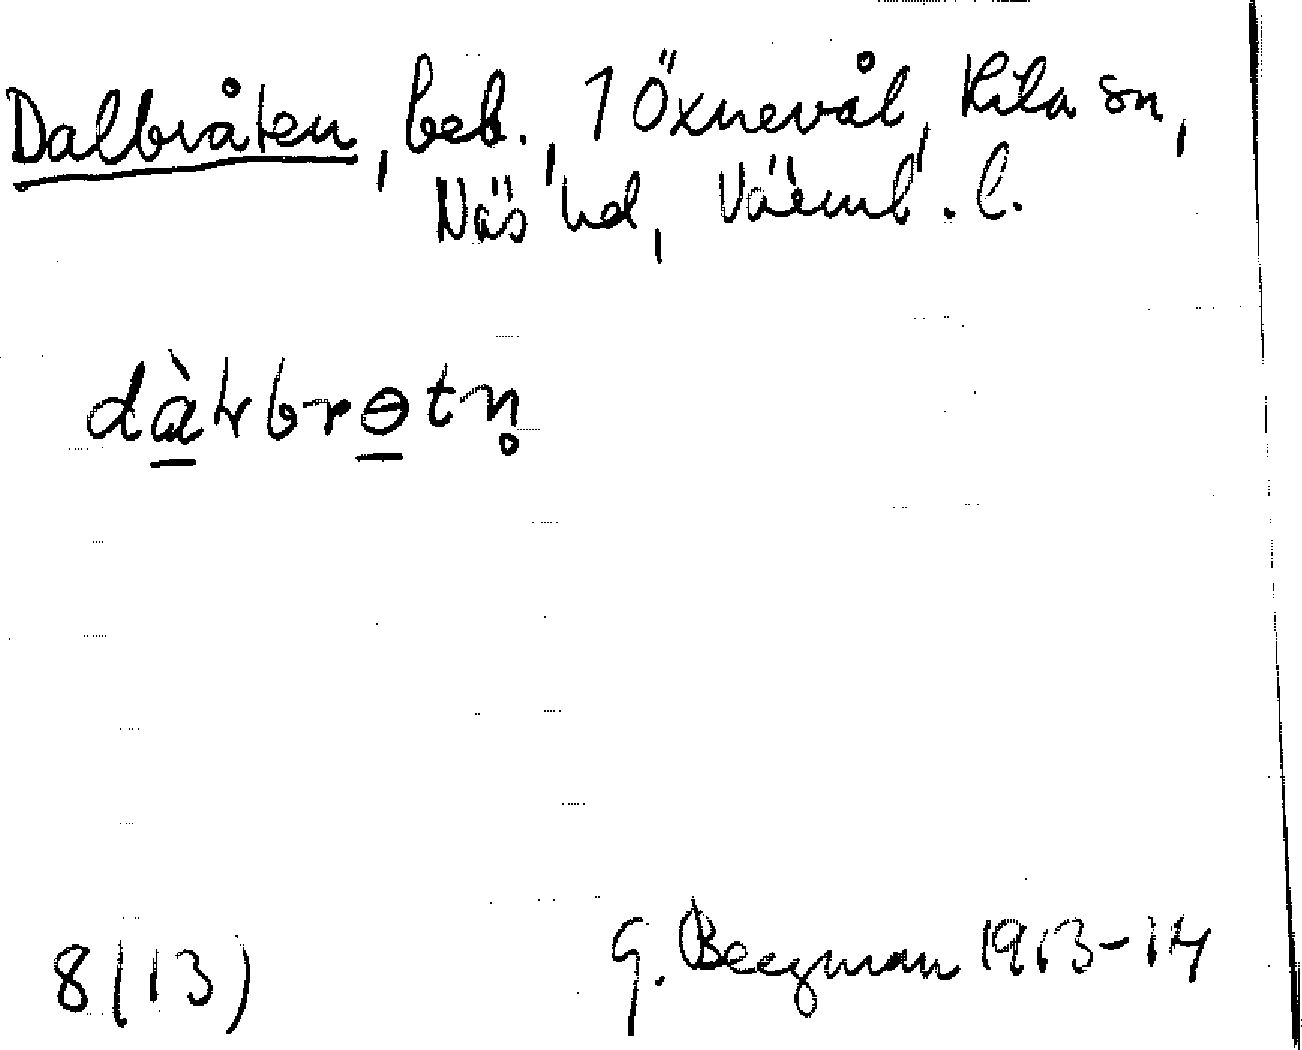 Dalbråten, beb., 1 Öxnevål, Kila sn,
Näs hd, Värml. l.
dàḷbrɵtn̥
8(13)
G. Bergman 1913-14